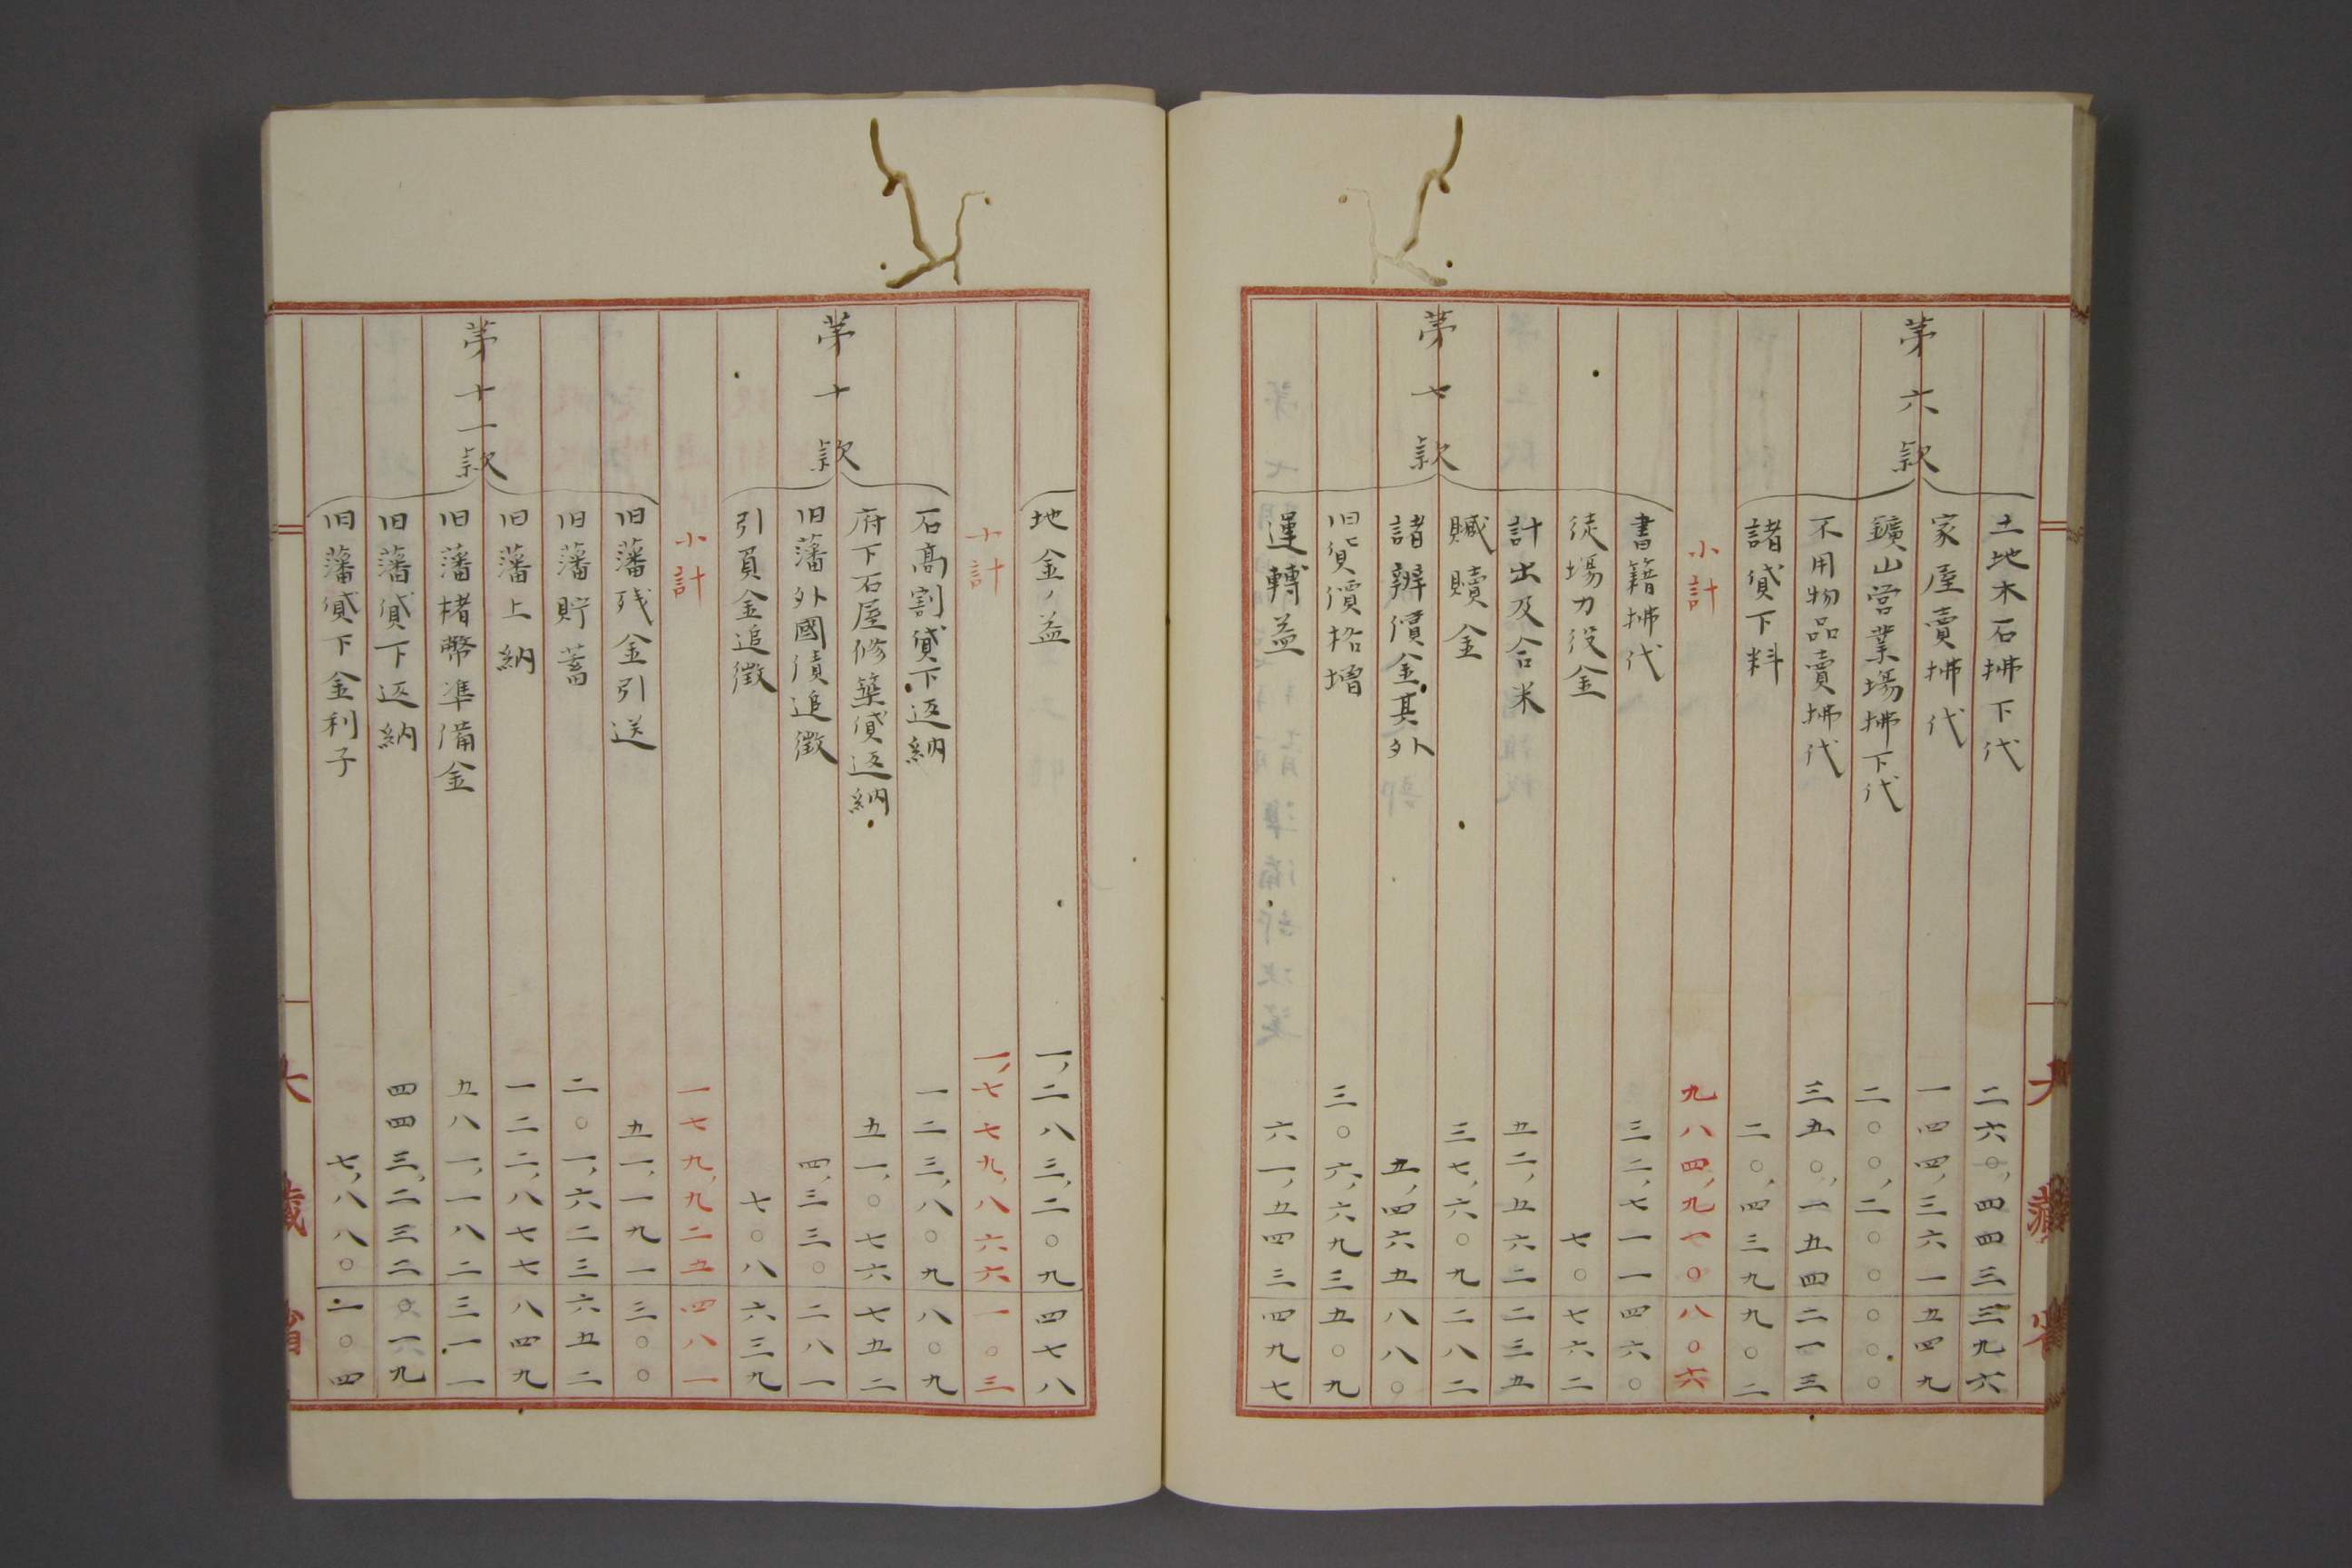 土地木石拂下代 二六〇,四四三三九六
家屋賣拂代 一四四,三六一五四九
第六款
鑛山営業場拂下代 二〇〇,二〇〇〇〇〇
不用物品賣拂代 三五〇,一五四二一三
諸貸下料 二〇,四三九九〇二
小計 九八四,九一〇八〇六
書籍拂代 三二,七一一四六〇
徒場力役金 七〇七六二
計出及合米 五二,五六二二三五
第七款
贓贖金 三七,六〇九二八二
諸辨償金其外 五,四六五八八〇
旧貨價格増 三〇六,六九三五〇九
運轉益 六一,五四三四九七
大藏省
地金ノ益 一,二八三,二〇九四七八
小計 一,七七九,八六六一〇三
石高割貸下返納 一二三,八〇九八〇九
府下石屋修築貸返納 五一,〇七六七五二
第十款
旧藩外國債追徴 四,三三〇二八一
引負金追徴 七〇八六三九
小計 一七九,九二五四八一
旧藩残金引送 五一,一九一三〇〇
旧藩貯蓄 二〇一,六二三六五二
旧藩上納 一二二,八七七八四九
第十一款
旧藩楮幣準備金 五八一,一八二三一一
旧藩貸下返納 四四三,二三二
旧藩貸下金利子 七,八八〇
大藏省